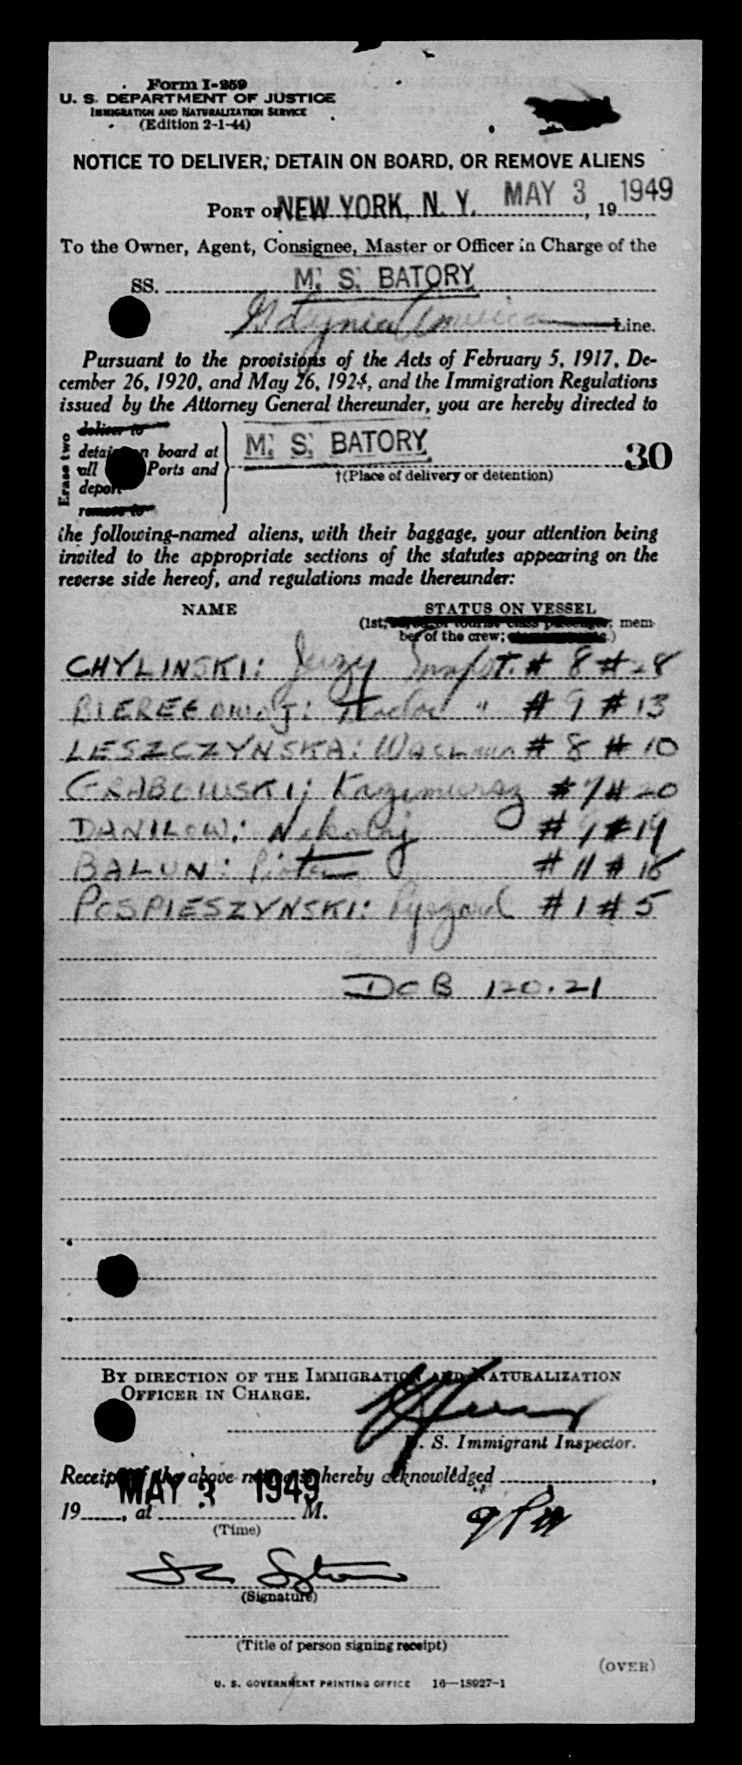 Form I-259
U. S. DEPARTMENT OF JUSTICE
IMMIGRATION AND NATURALIZATION SERVICE
(Edition 2-1-44)
NOTICE TO DELIVER, DETAIN ON BOARD, OR REMOVE ALIENS
PORT OF NEW YORK, N. Y. MAY 3, 19 1949
To the Owner, Agent, Consignee, Master or Officer in Charge of the
SS. M. S. BATORY
Gdynia America Line.
Pursuant to the provisions of the Acts of February 5, 1917, De-
cember 26, 1920, and May 26, 1924, and the Immigration Regulations
issued by the Attorney General thereunder, you are hereby directed to
Erase two
deliver to
detain on board at
all Ports and
deport
remove to
M. S. BATORY 30
†(Place of delivery or detention)
the following-named aliens, with their baggage, your attention being
invited to the appropriate sections of the statutes appearing on the
reverse side hereof, and regulations made thereunder:
NAME STATUS ON VESSEL
(1st, or tourist class passenger; mem-
ber of the crew; )
CHYLINSKI: Jerzy # 8 # 28
" # 9 # 13
LESZCZYNSKA: # 8 # 10
GRABOWSKI: Kazimierz # 7 # 20
DANILOW: Nikolaj # 9 # 19
BALUN: Piotr # 11 # 18
POSPIESZYNSKI: Ryszard # 1 # 5
DCB 120.21
BY DIRECTION OF THE IMMIGRATION AND NATURALIZATION
OFFICER IN CHARGE.
U. S. Immigrant Inspector.
Receipt of the above notice is hereby acknowledged ,
MAY 3 1949
19 , at M.
(Time)
9 PM
(Signature)
(Title of person signing receipt)
(OVER)
U. S. GOVERNMENT PRINTING OFFICE 16—18927-1